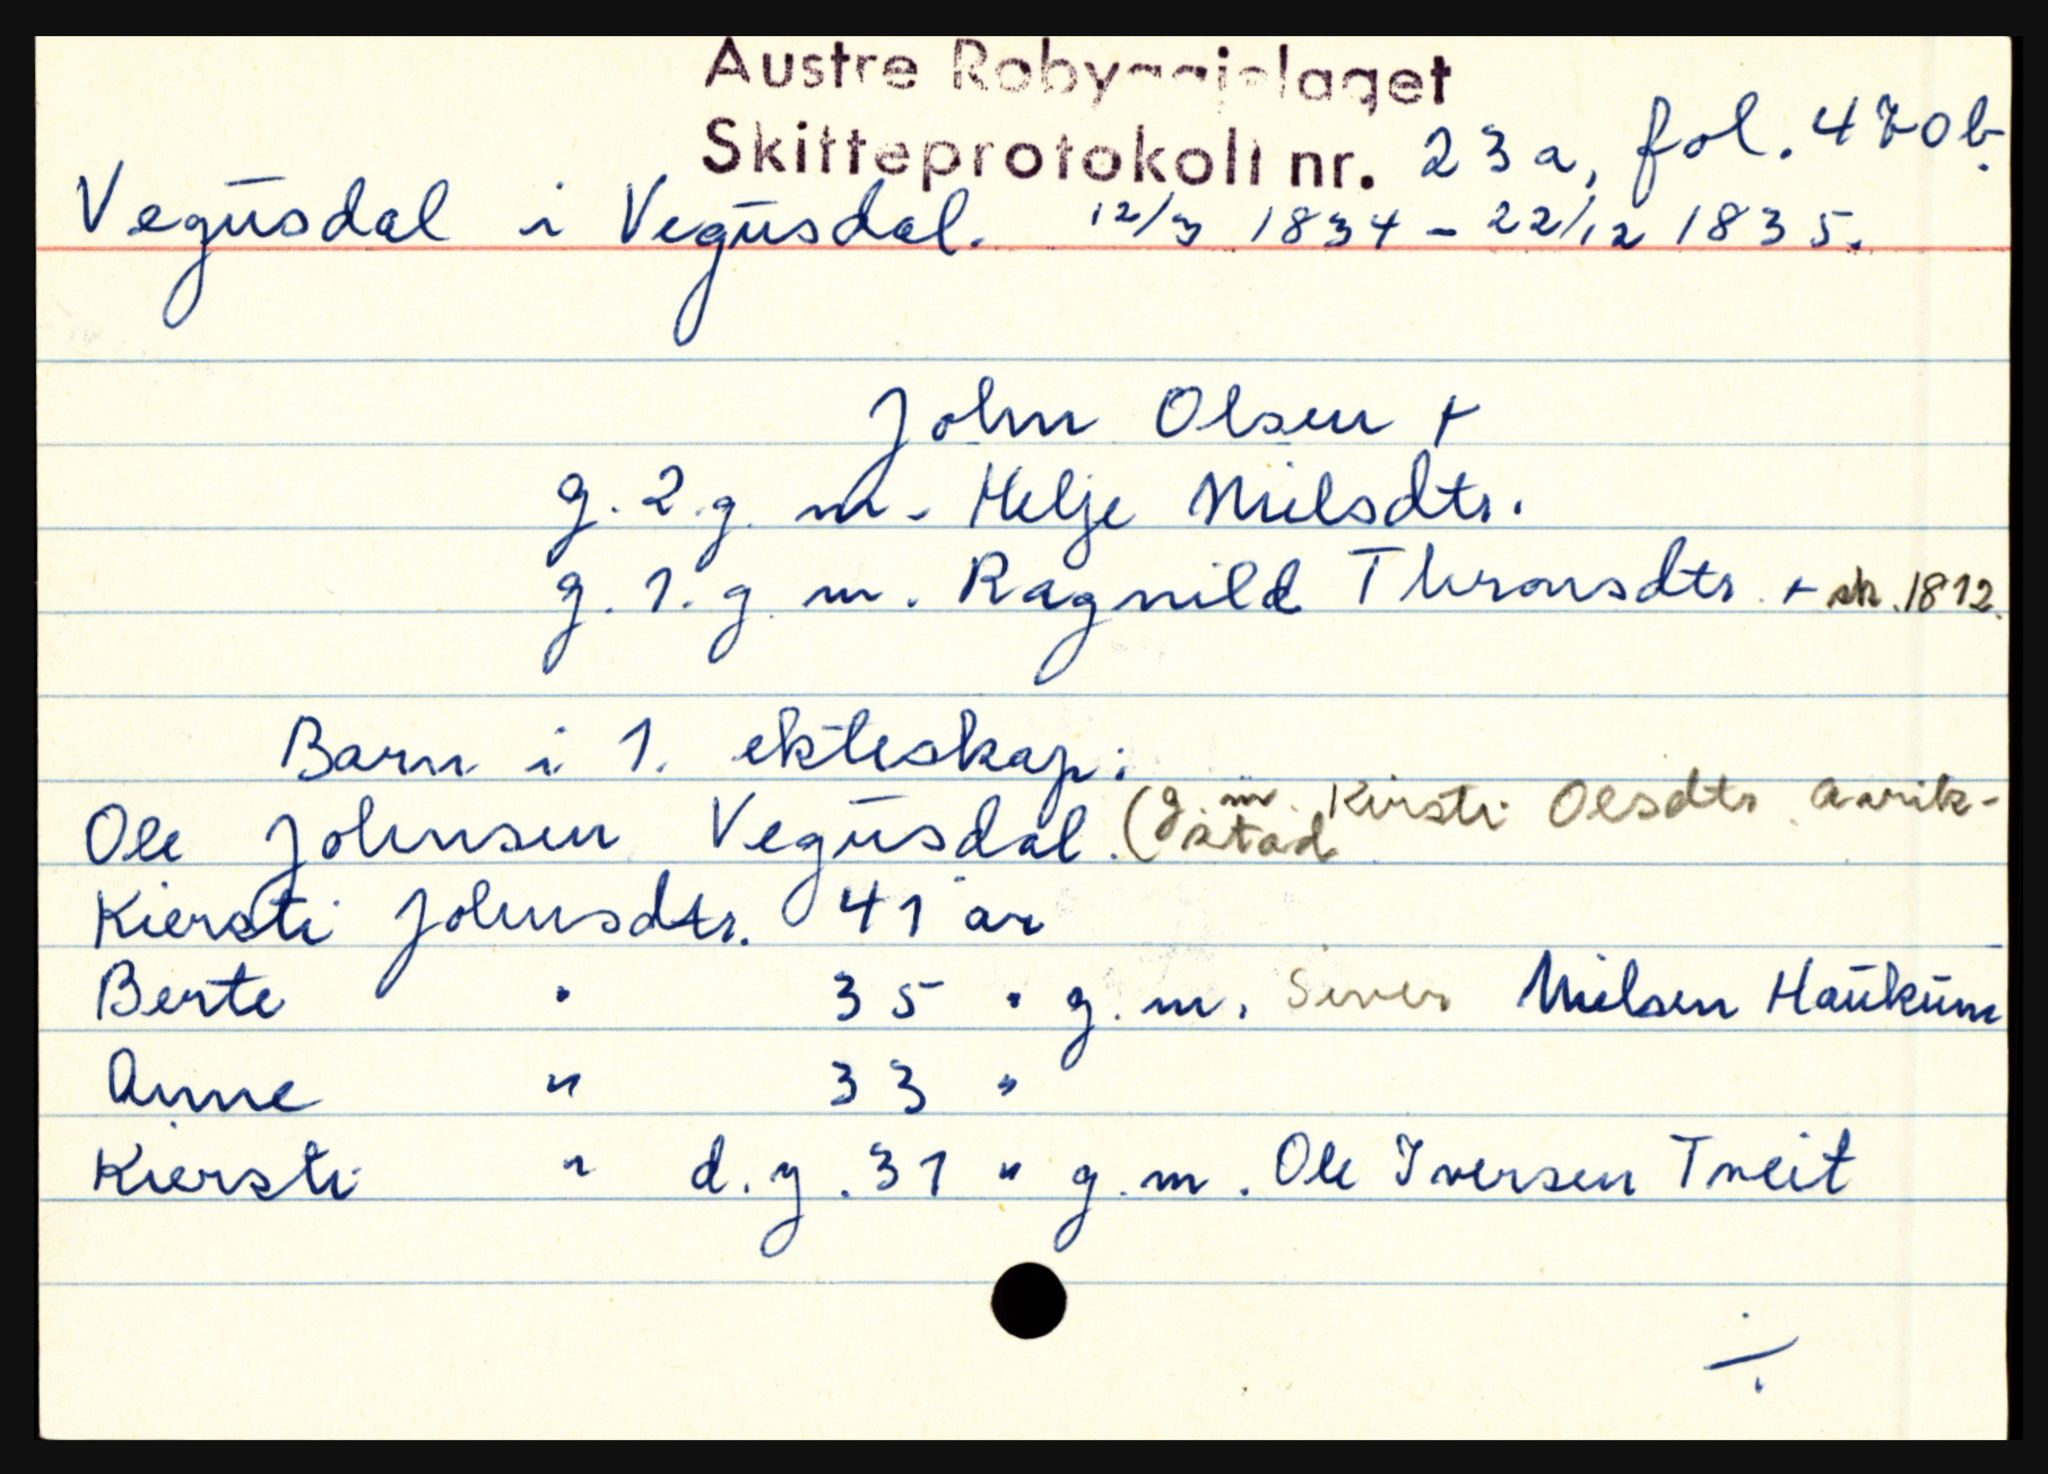 Austre Robyggjelaget
Skifteprotokoll nr. 23a, fol. 470b.
Vegusdal i Vegusdal. 12/3 1834 - 22/12 1835.
John Olsen +
g. 2. g. m. Helje Nielsdtr.
g. 1. g. m. Ragnild Thronsdtr. + sk. 1812.
Barn i 1. ekteskap:
Ole Johnsen Vegusdal. (g. m. Kirsti Olsdtr. Aurik-
stad
Kiersti Johnsdtr. 41 år
Berte " 35 " g. m. Siver Nielsen Haukum
Anne " 33 "
Kiersti " d. y. 31 " g. m. Ole Iversen Tveit
./.